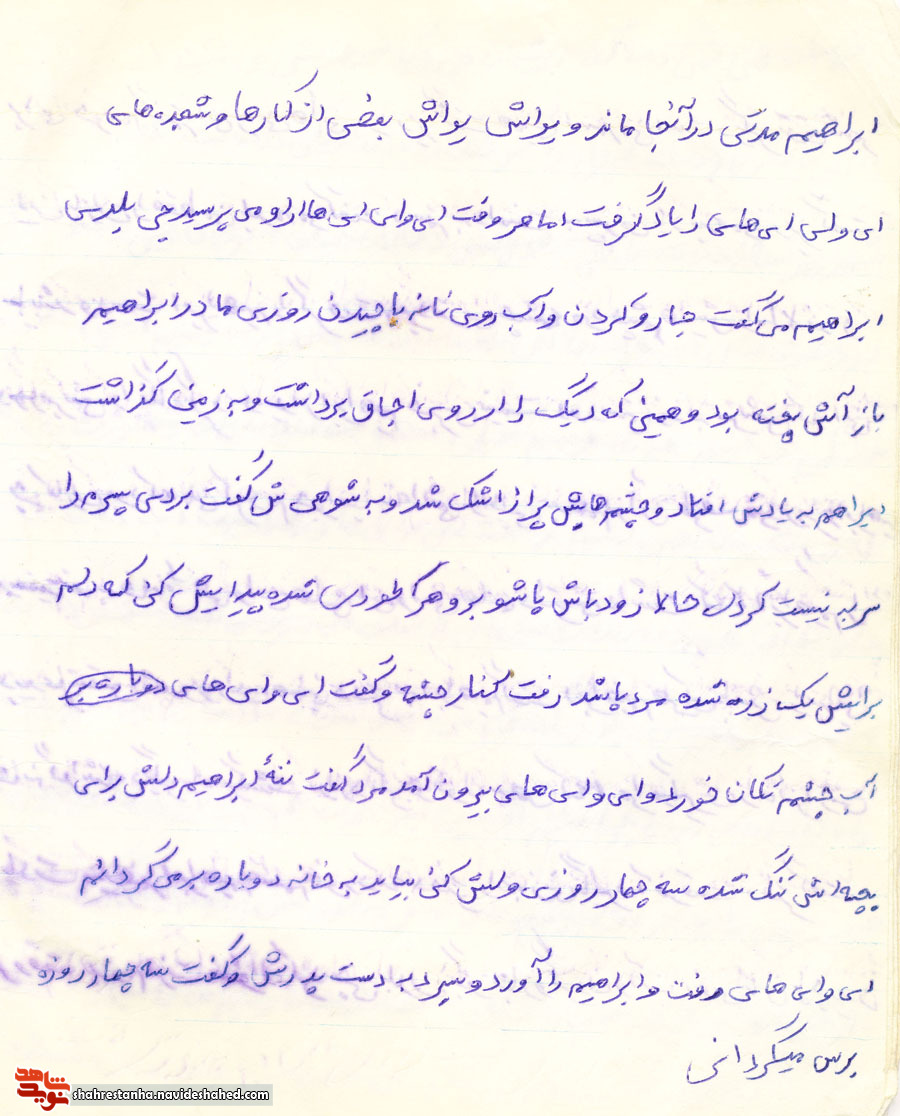 ابراهیم مدتی در آنجا ماند و یواش یواش بعضی از کارها و شعبده های
ای وای ای های را یاد گرفت اما هر وقت ای وای ای ها از او می پرسید چی بلدی
ابراهیم می گفت جارو کردن و آب روی نانه پاچیدن روزی مادر ابراهیم
باز آش پخته بود و همینی که دیگ را از روی اجاق برداشت و به زمین گذاشت
ابراهیم به یادش افتاد و چشم هایش پر از اشک شد و به شوهرش گفت بردی پسرم را
سر به نیست کردی حالا زود باش پاشو برو هر طوری شده پیدایش کنی که دلم
برایش یک ذره شده مرد پاشد رفت کنار چشمه و گفت ای وای های دوباره
آب چشم تکان خورد و ای وای های بیرون آمد مرد گفت ننهٔ ابراهیم دلش برای
بچه اش تنگ شده سه چهار روزی ولش کنی بیاید به خانه دوباره برمی گردانم
ای وای های رفت و ابراهیم را آورد و سپرد به دست پدرش و گفت سه چهار روزه
برمیگردانی
شاهد
نوید
shahrestanha.navideshahed.com